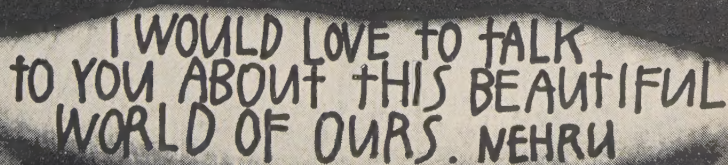 I WOULD LOVE TO TALK
TO YOU ABOUT THIS BEAUTIFUL
WORLD OF OURS. NEHRU